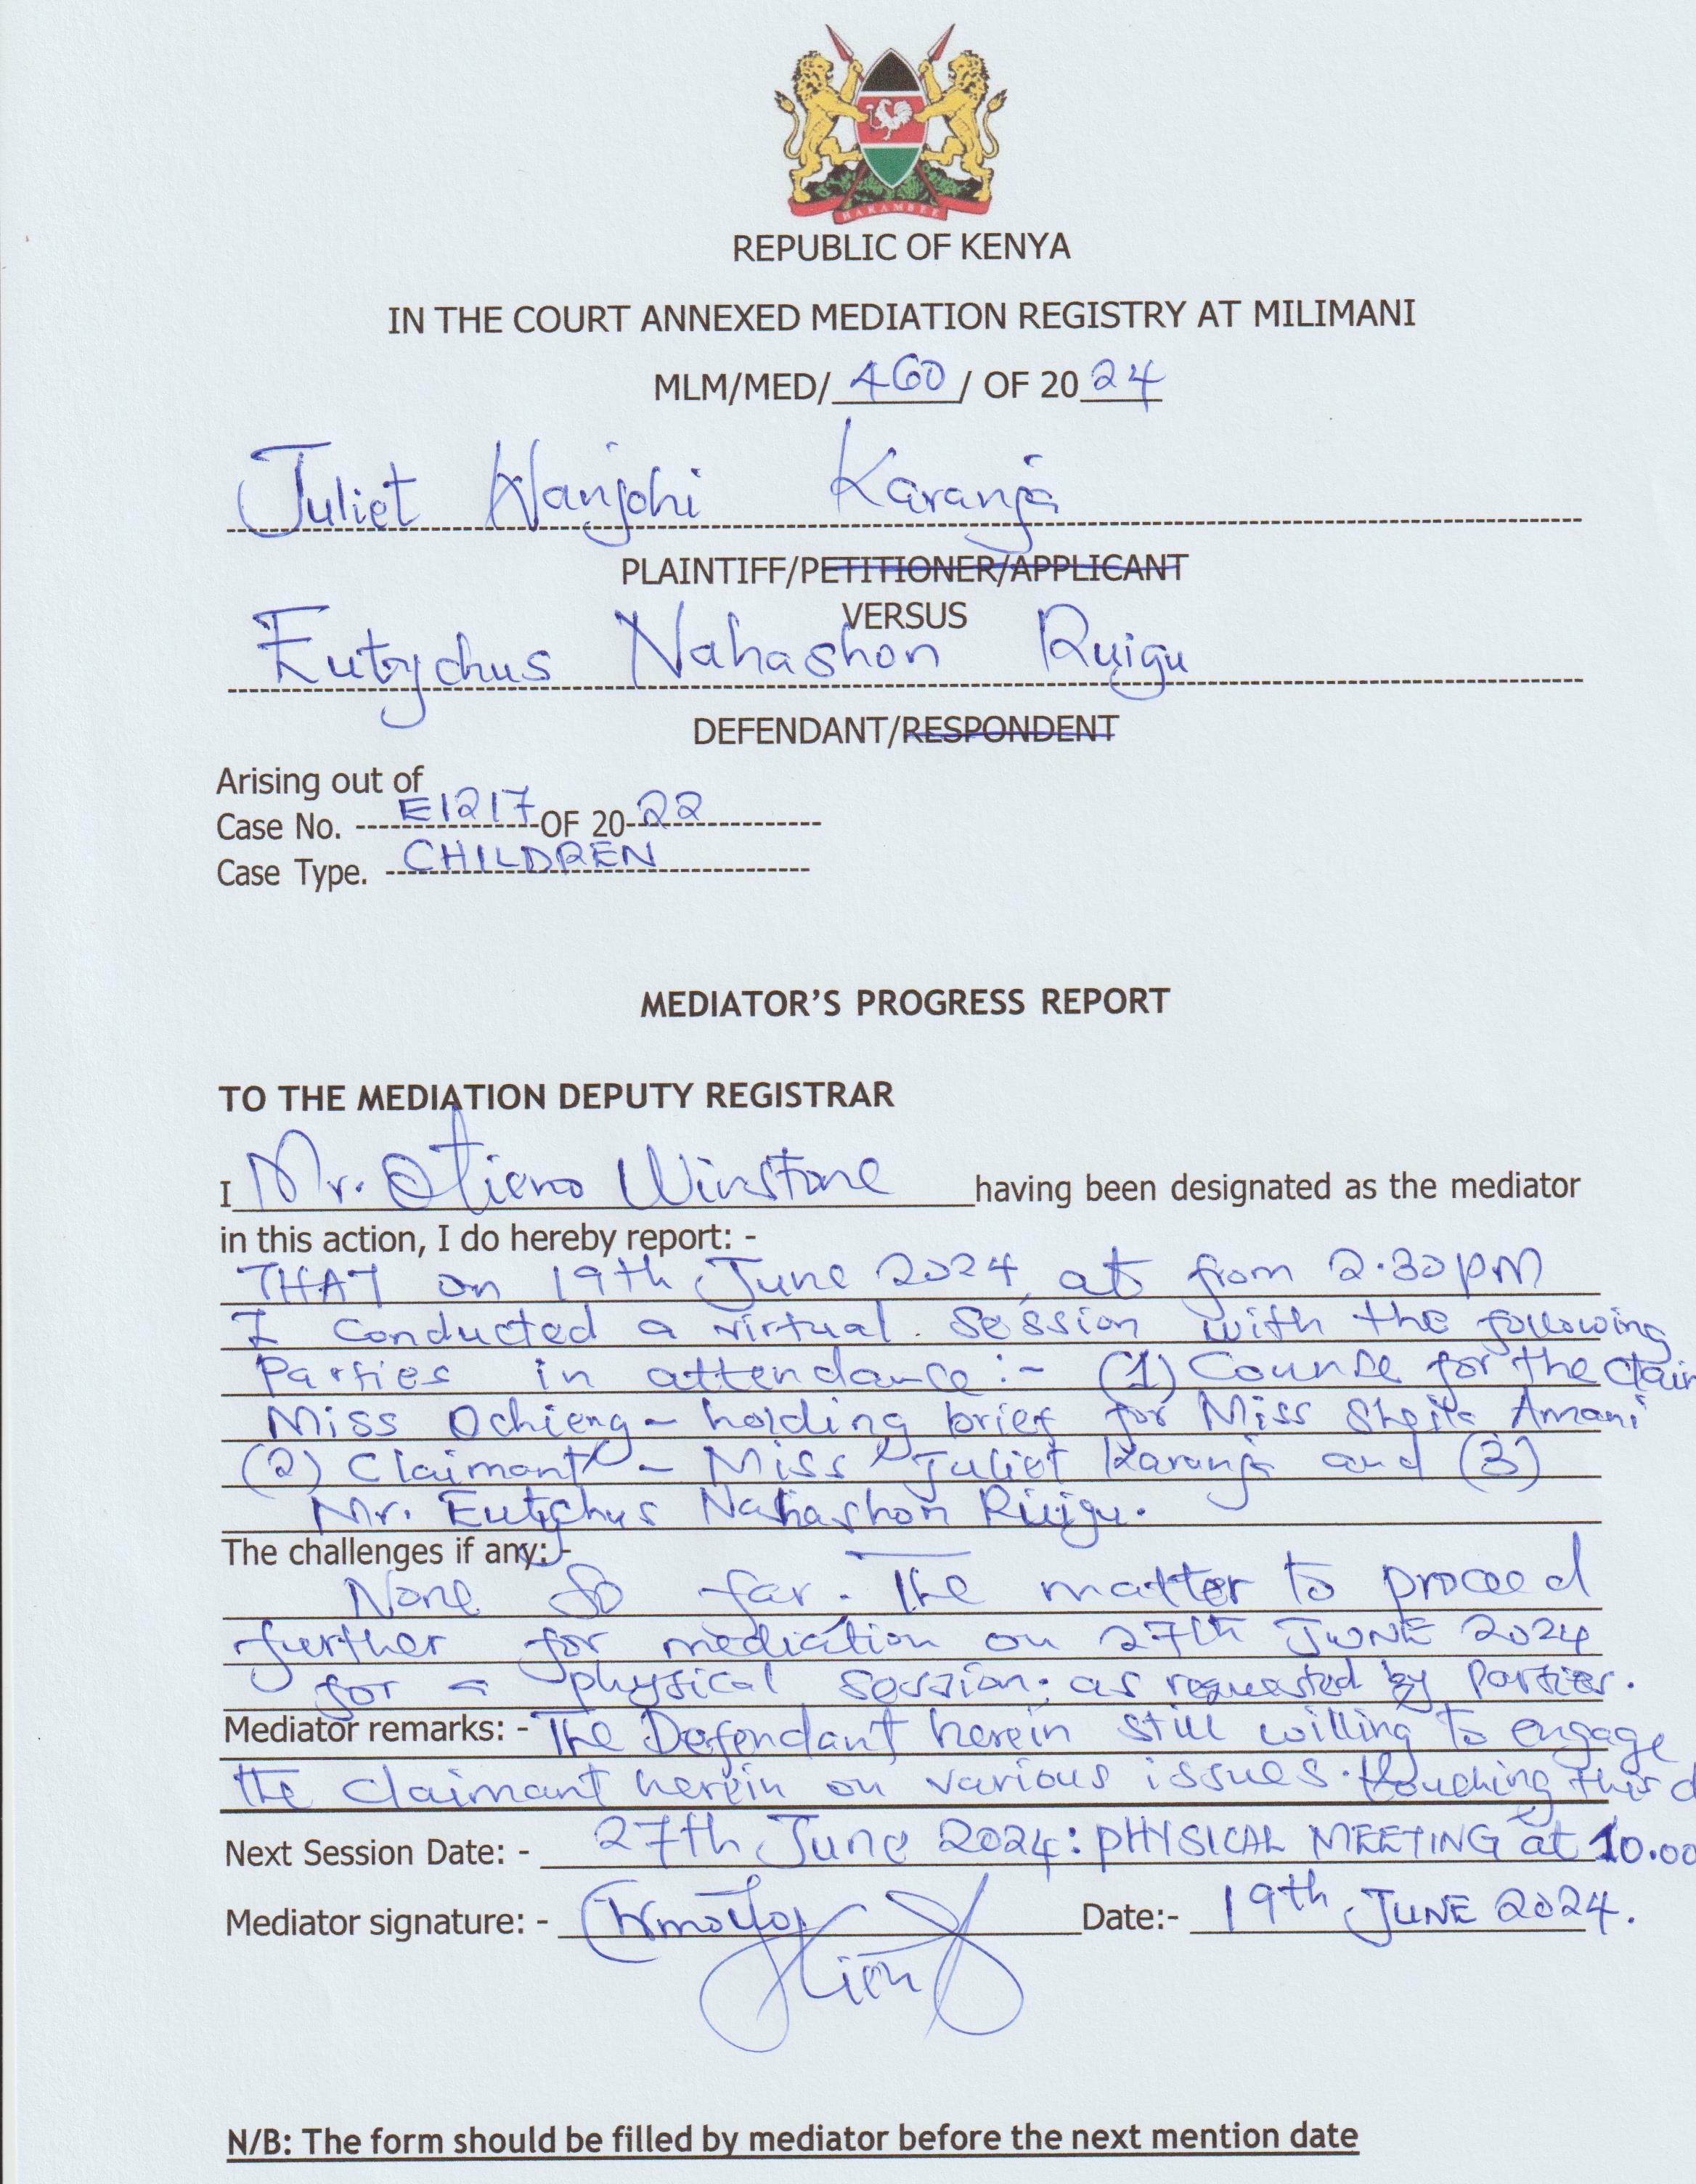 HARAMBEE
REPUBLIC OF KENYA
IN THE COURT ANNEXED MEDIATION REGISTRY AT MILIMANI
MLM/MED/ 460 / OF 20 24
Juliet Wanjohi Karanja
PLAINTIFF/PETITIONER/APPLICANT
VERSUS
Eutychus Nahashon Ruigu
DEFENDANT/RESPONDENT
Arising out of
Case No. E1217 OF 20 22
Case Type. CHILDREN
MEDIATOR'S PROGRESS REPORT
TO THE MEDIATION DEPUTY REGISTRAR
I Mr. Otieno Winstone having been designated as the mediator
in this action, I do hereby report: -
THAT on 19th June 2024, at from 2.30pm
I conducted a virtual session with the following
Parties in attendance:- (1) Counse for the Claim
Miss Ochieng - holding brief for Miss Sheila Amani
(2) Claimant - Miss Juliet Karanja and (3)
Mr. Eutychus Nahashon Ruigu.
The challenges if any: -
None so far. The matter to proceed
further for mediation on 27th JUNE 2024
for a physical session; as requested by Parties.
Mediator remarks: - The Defendant herein still willing to engage
the claimant herein on various issues touching this
Next Session Date: - 27th June 2024: PHYSICAL MEETING at 10.00
Mediator signature: - Date:- 19th JUNE 2024.
N/B: The form should be filled by mediator before the next mention date